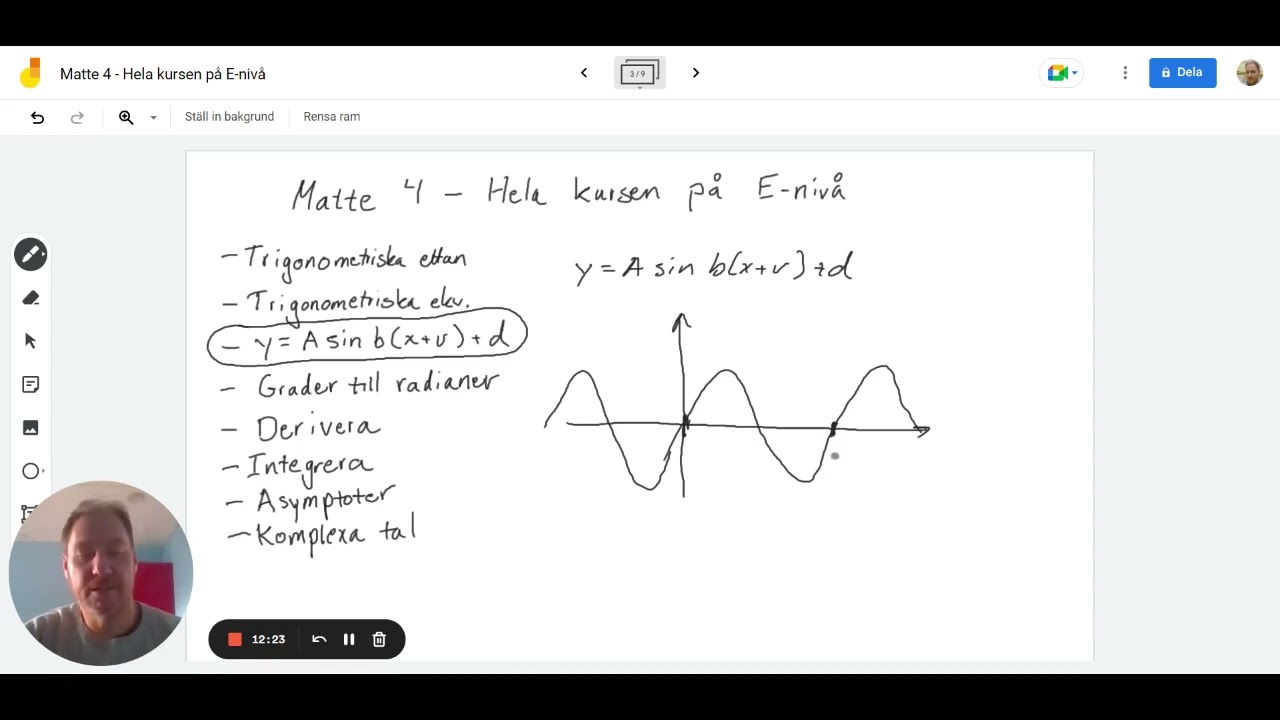 Matte 4 - Hela kursen på E-nivå
3/9
Dela
Ställ in bakgrund
Rensa ram
Matte 4 - Hela kursen på E-nivå
- Trigonometriska ettan
- Trigonometriska ekv.
- y = A sin b(x+v) + d
- Grader till radianer
- Derivera
- Integrera
- Asymptoter
- Komplexa tal
y = A sin b(x+v) + d
12:23